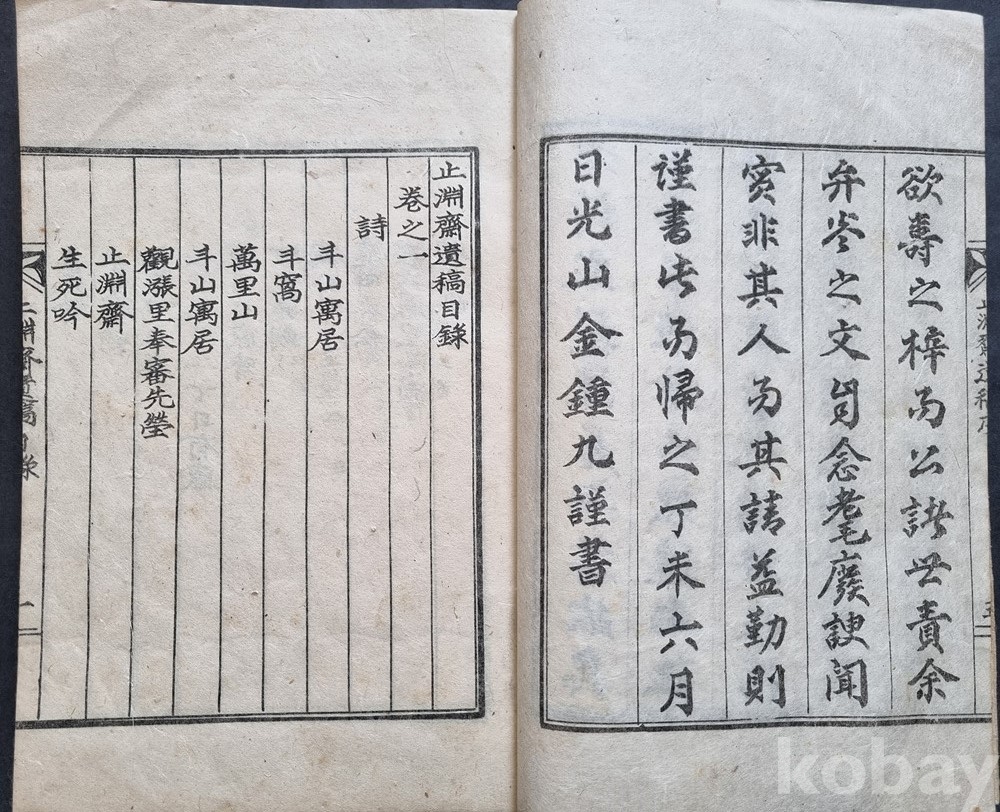 欲壽之梓而公誘世責余
弁岑之文自念耄廢諛聞
實非其人而其請益勤則
謹書此而歸之丁未六月
日光山金鍾九謹書
止淵齋遺稿目錄
卷之一
詩
斗山寓居
斗窩
萬里山
斗山寓居
觀漲里奉審先塋
止淵齋
生死吟
止淵齋遺稿目錄
一
kobay